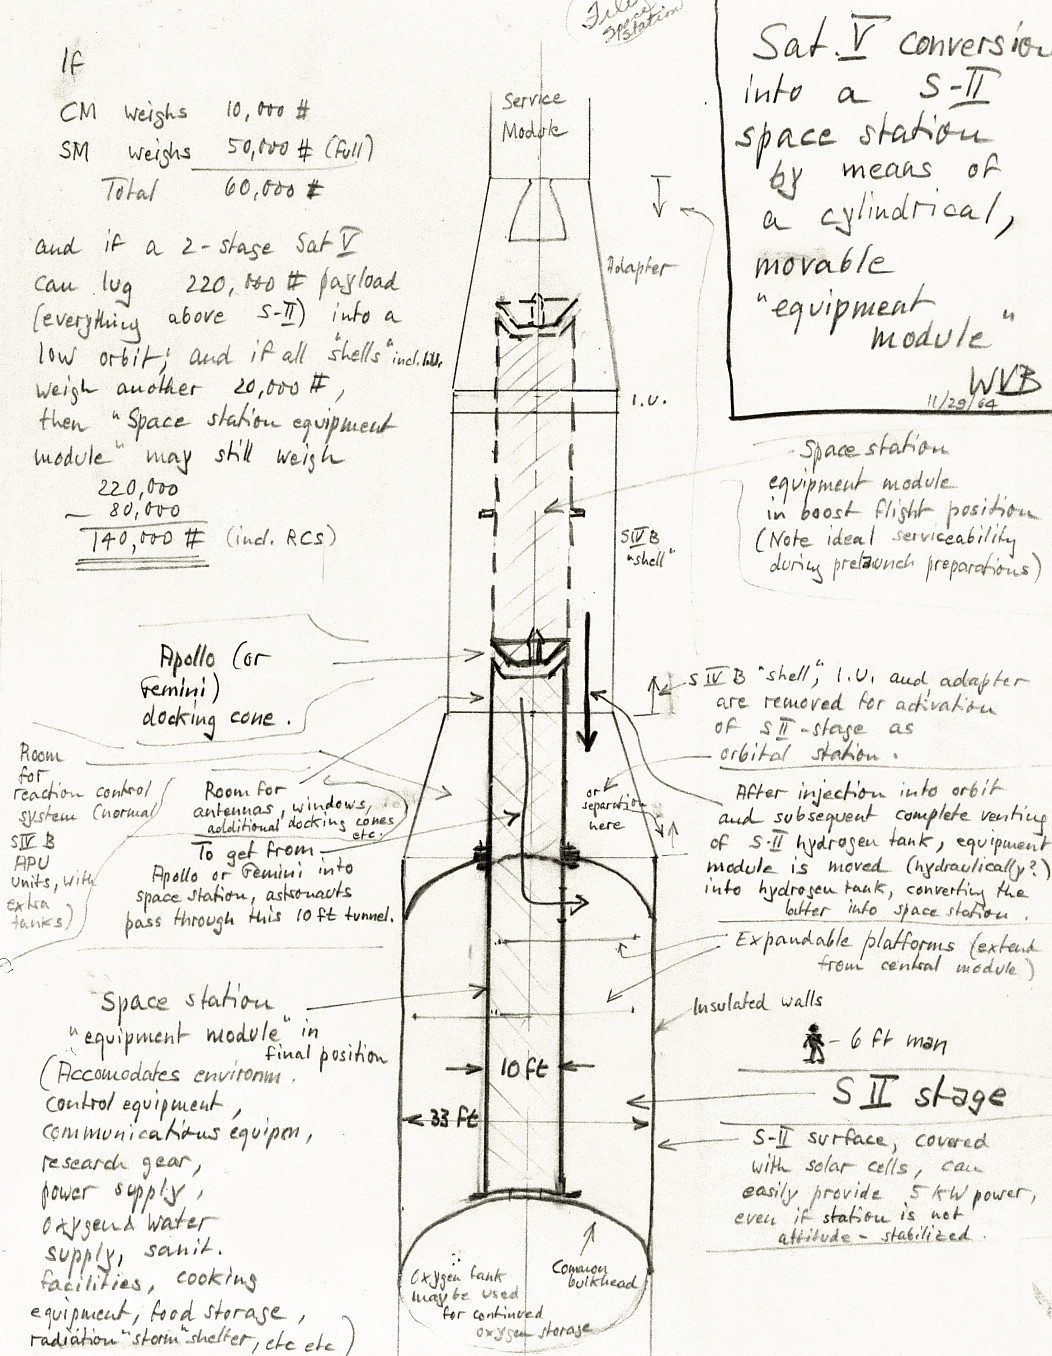 File
Space
Station
Sat. V conversion
into a S-II
space station
by means of
a cylindrical,
movable
"equipment
module"
WVB
11/29/64
If
CM weighs 10,000 #
SM weighs 50,000 # (full)
Total 60,000 #
and if a 2-stage Sat V
can lug 220,000 # payload
(everything above S-II) into a
low orbit; and if all "shells" incl.
weigh another 20,000 #,
then "Space station equipment
module" may still weigh
220,000
- 80,000
140,000 # (incl. RCS)
Service
Module
Adapter
I.U.
SIVB
"shell"
Space station
equipment module
in boost flight position
(Note ideal serviceability
during prelaunch preparations)
Apollo (or
Gemini)
docking cone.
SIVB "shell", I.U. and adapter
are removed for activation
of SII-stage as
orbital station.
or
separation
here
Room
for
reaction control
system (normal
SIVB
APU
units, with
extra
tanks)
Room for
antennas, windows,
additional docking cones
etc.
To get from
Apollo or Gemini into
space station, astronauts
pass through this 10 ft tunnel.
After injection into orbit
and subsequent complete venting
of S-II hydrogen tank, equipment
module is moved (hydraulically?)
into hydrogen tank, converting the
latter into space station.
Expandable platforms (extend
from central module)
Insulated walls
6 ft man
Space station
"equipment module" in
final position
(Accomodates environm.
control equipment,
communications equipm,
research gear,
power supply,
oxygen & water
supply, sanit.
facilities, cooking
equipment, food storage,
radiation "storm" shelter, etc etc)
10 ft
33 ft
S II stage
S-II surface, covered
with solar cells, can
easily provide 5 kW power,
even if station is not
attitude-stabilized.
Oxygen tank
may be used
for continued
oxygen storage
Common
bulkhead